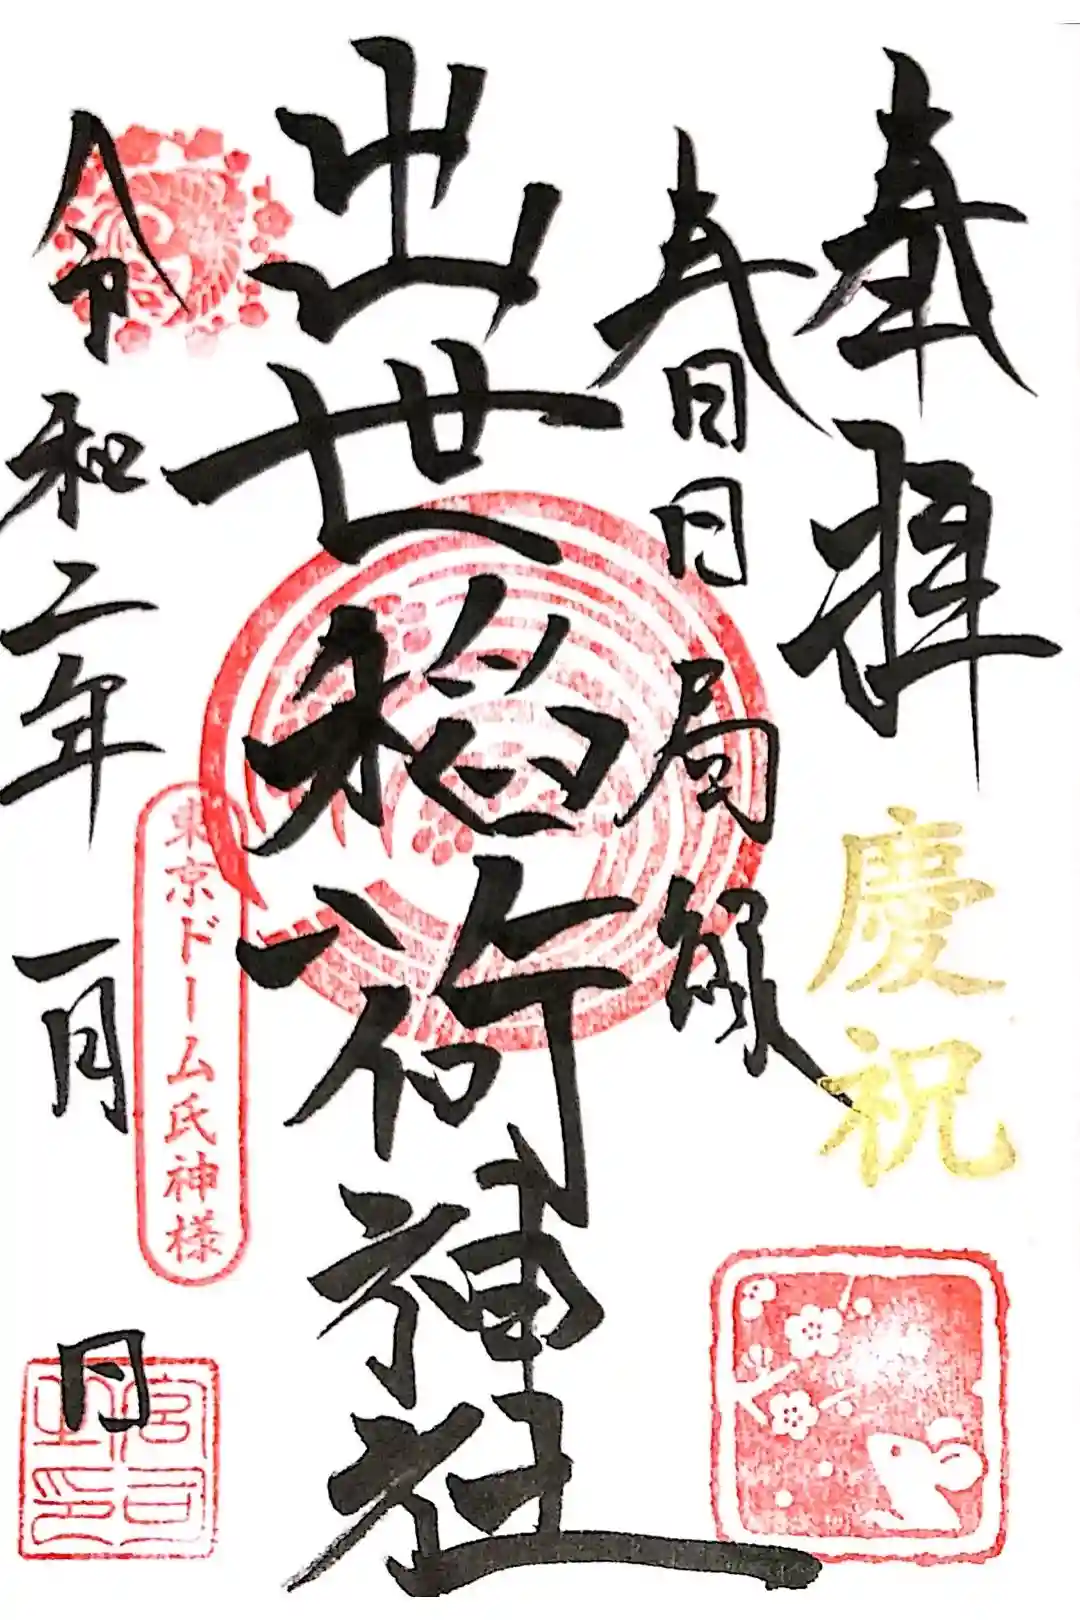 奉拝
慶祝
春日局縁
出世稲荷神社
令和二年 一月 日
東京ドーム氏神様
宮司之印